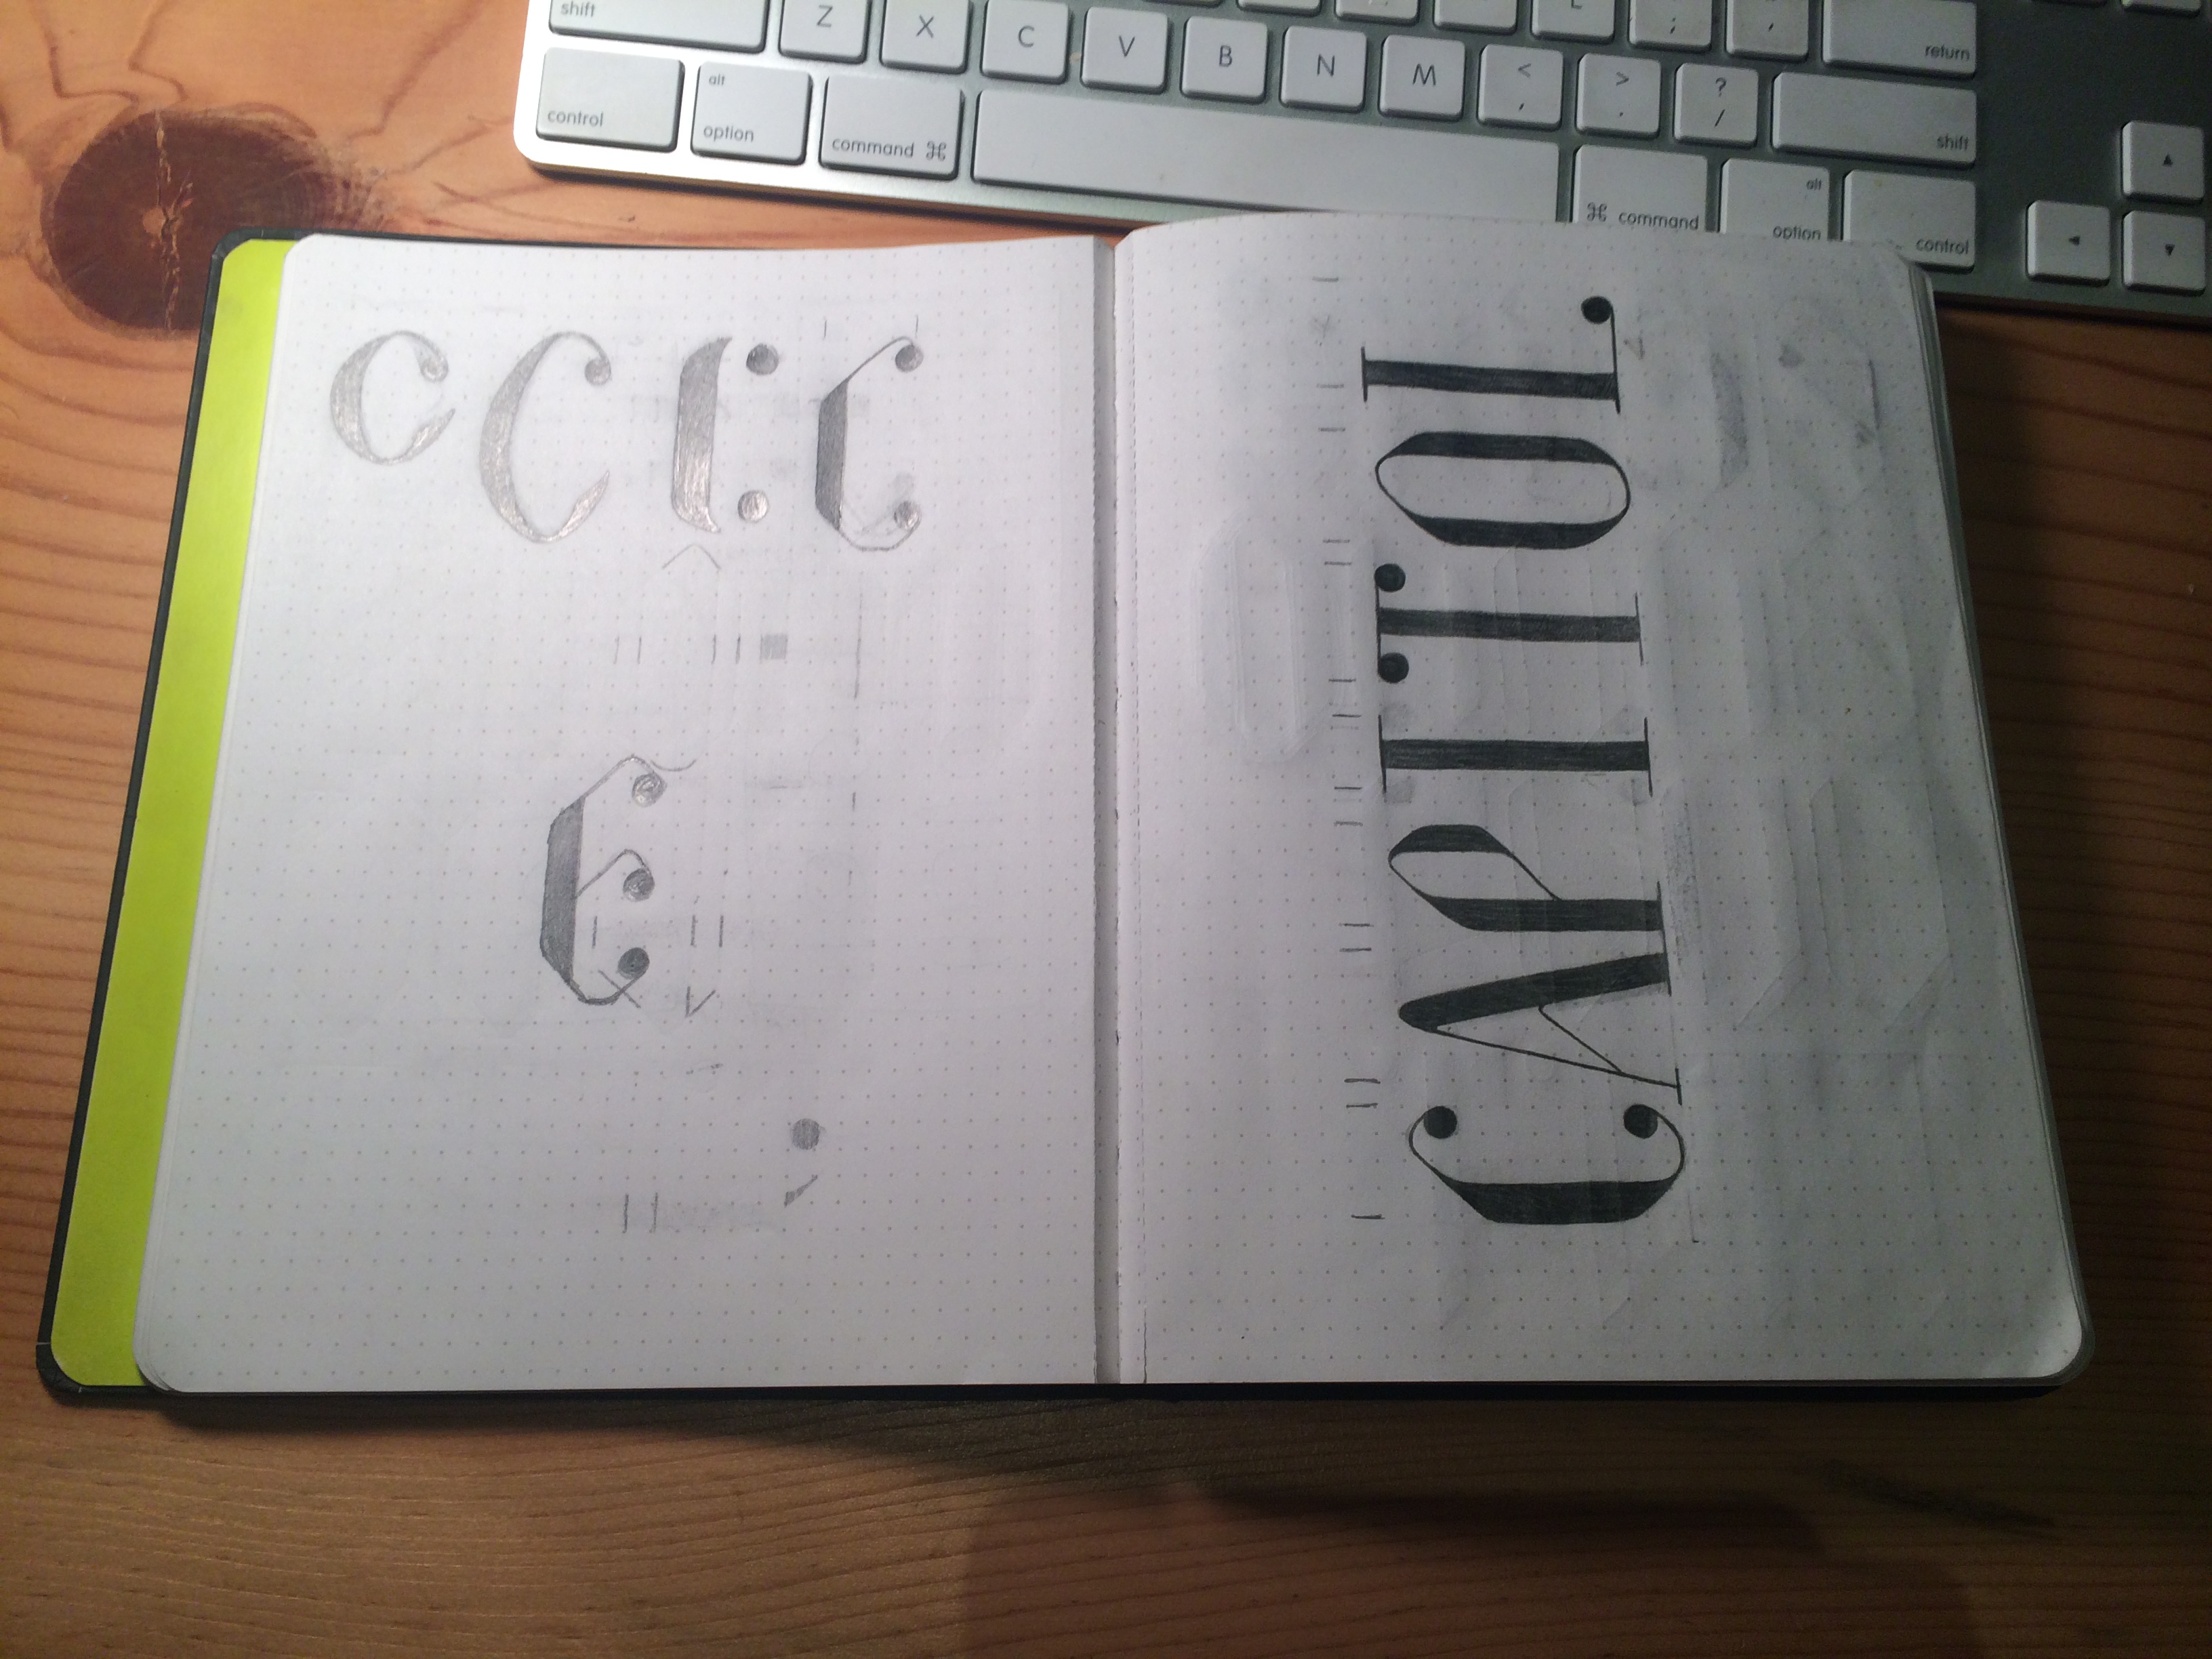 shift Z X C V B N M < , > . ? / return
control alt option command ⌘ ⌘ command alt option control shift
C C C C
E
CAPITOL